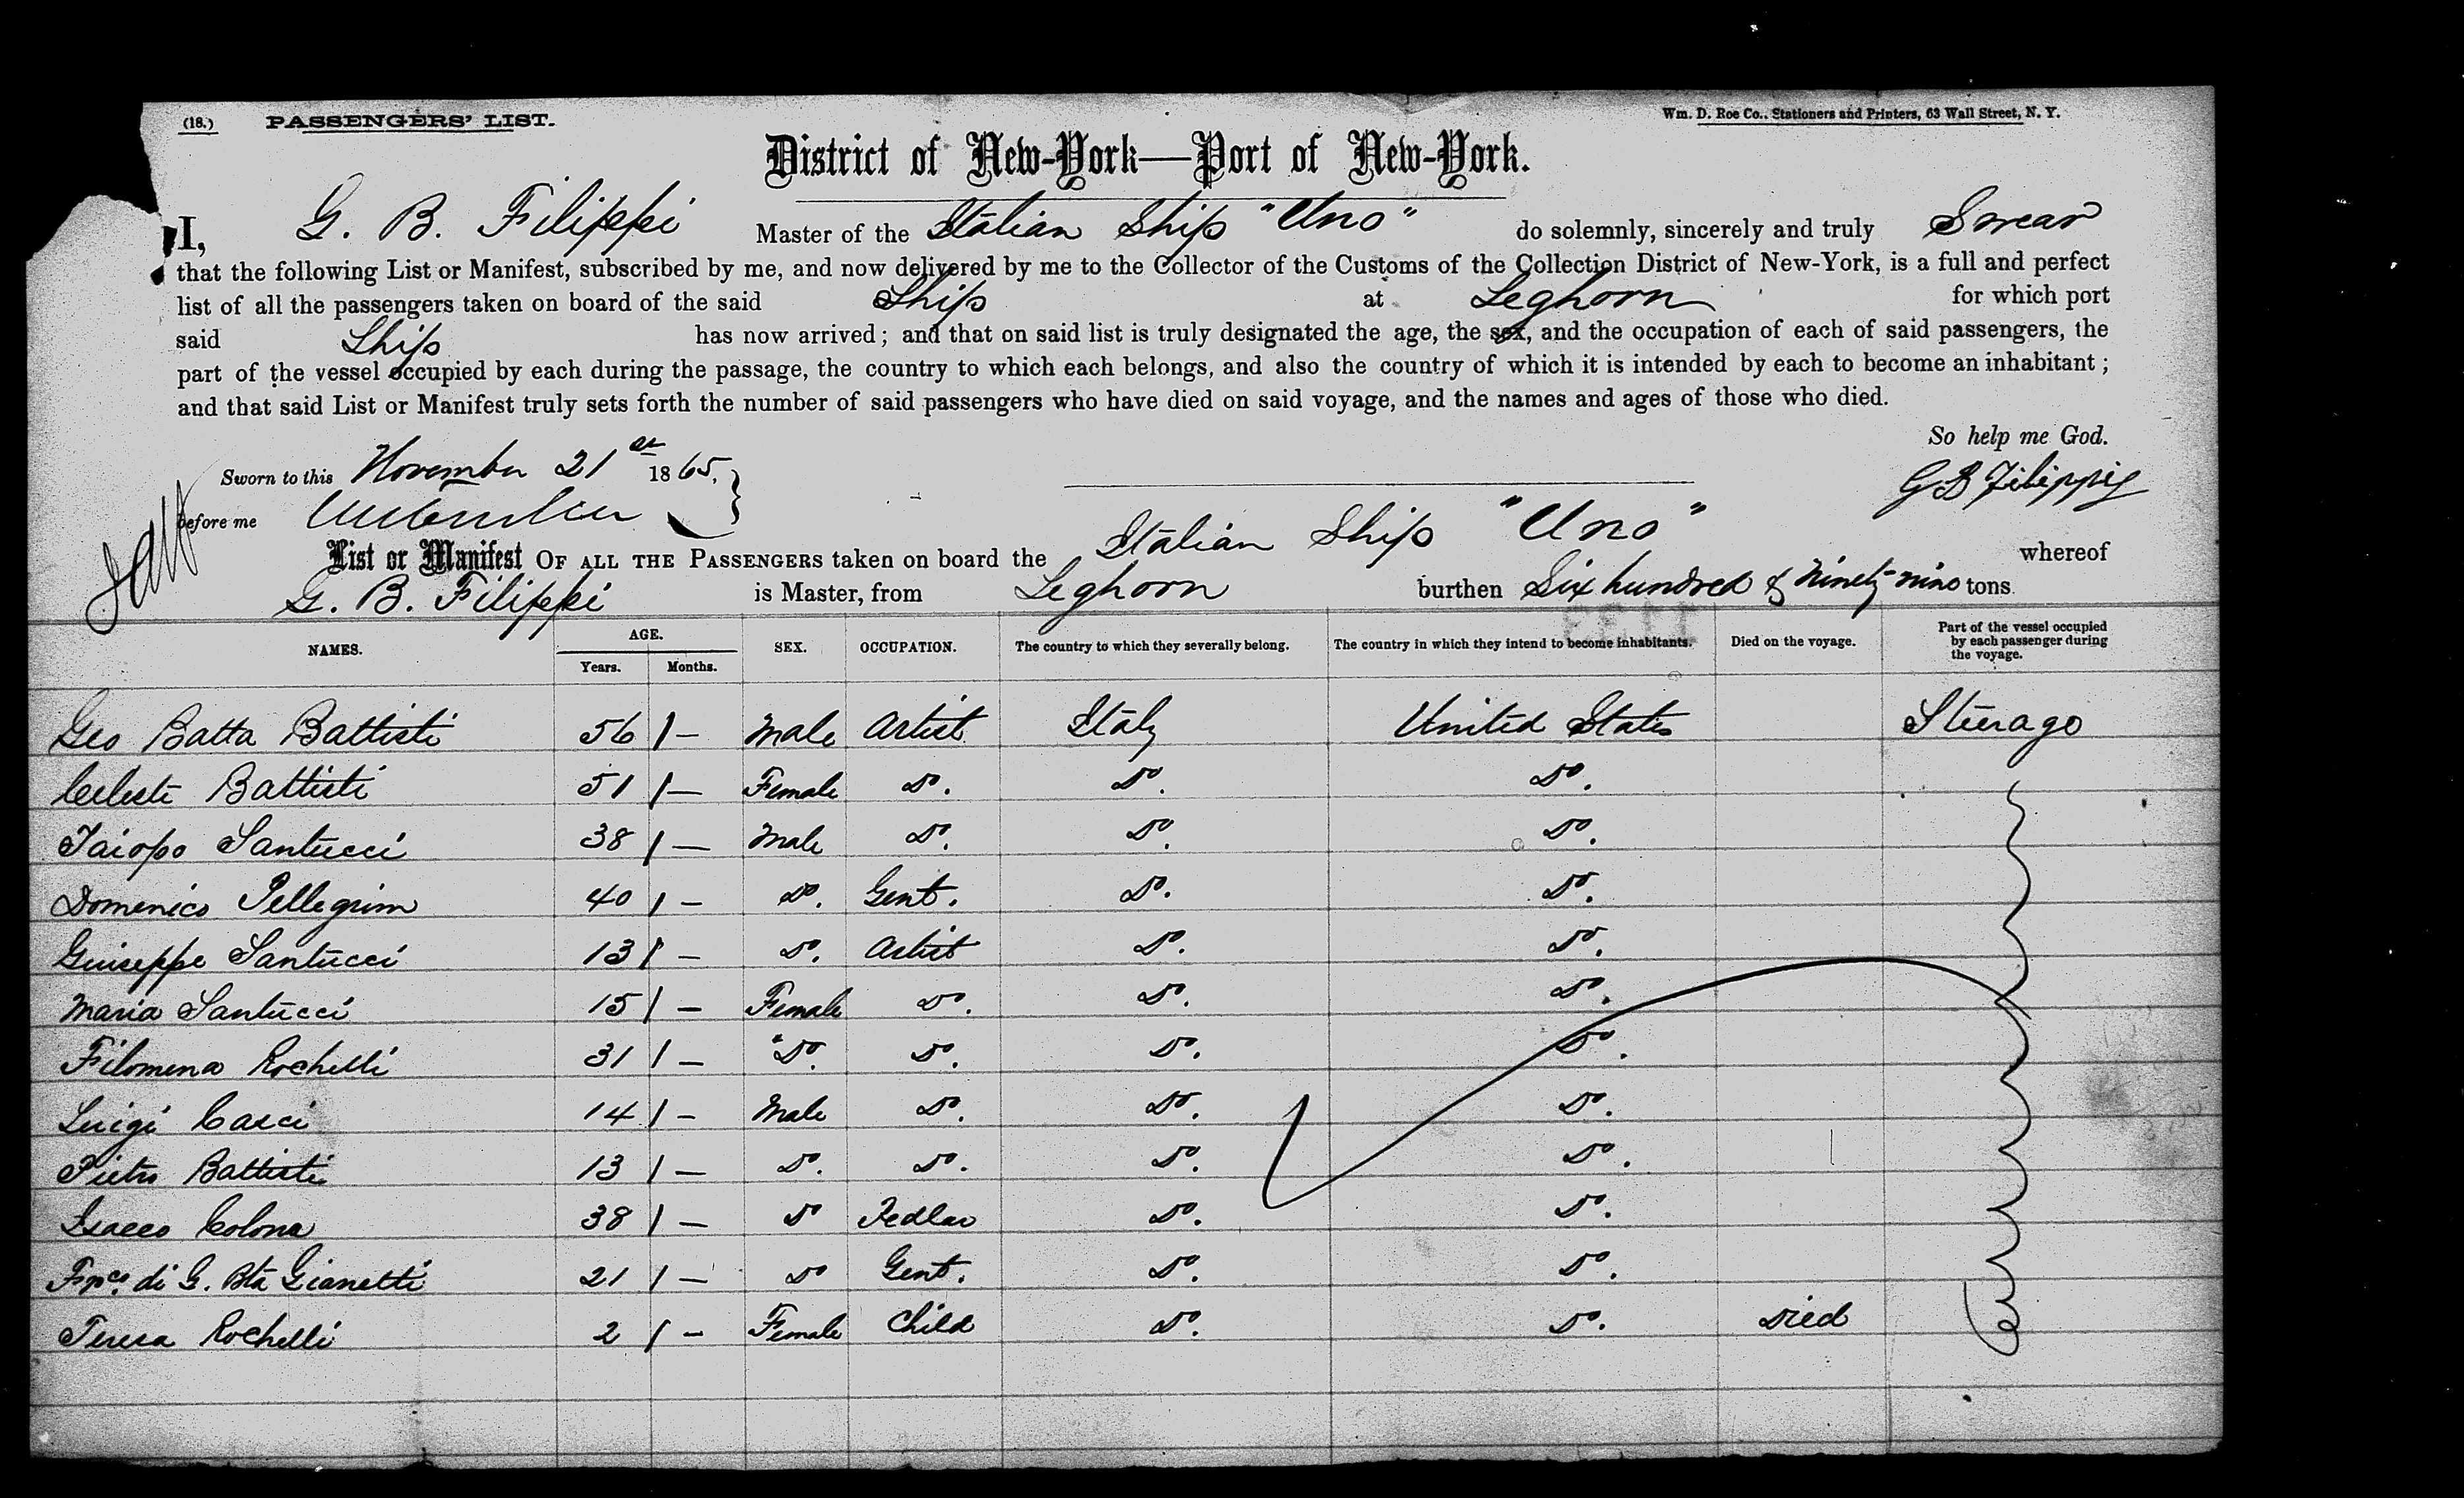 (18.) PASSENGERS' LIST. Wm. D. Roe Co., Stationers and Printers, 63 Wall Street, N. Y.
District of New-York—Port of New-York.
I, G. B. Filippi Master of the Italian Ship "Uno" do solemnly, sincerely and truly Swear
that the following List or Manifest, subscribed by me, and now delivered by me to the Collector of the Customs of the Collection District of New-York, is a full and perfect
list of all the passengers taken on board of the said Ship at Leghorn for which port
said Ship has now arrived; and that on said list is truly designated the age, the sex, and the occupation of each of said passengers, the
part of the vessel occupied by each during the passage, the country to which each belongs, and also the country of which it is intended by each to become an inhabitant;
and that said List or Manifest truly sets forth the number of said passengers who have died on said voyage, and the names and ages of those who died.
So help me God.
Sworn to this November 21st 1865, G B Filippi
before me
List or Manifest OF ALL THE PASSENGERS taken on board the Italian Ship "Uno" whereof
G. B. Filippi is Master, from Leghorn burthen Six hundred & Ninety nine tons.
NAMES. AGE. Years. Months. SEX. OCCUPATION. The country to which they severally belong. The country in which they intend to become inhabitants. Died on the voyage. Part of the vessel occupied by each passenger during the voyage.
Geo Batta Battisti 56 / — Male Artist Italy United States Steerage
Celeste Battisti 51 / — Female Do. Do. Do.
Jaiopo Santucci 38 / — Male Do. Do. Do.
Domenico Pellegrim 40 / — Do. Gent. Do. Do.
Guiseppe Santucci 13 / — Do. Artist Do. Do.
Maria Santucci 15 / — Female Do. Do. Do.
Filomena Rochelli 31 / — "Do. Do. Do. Do.
Luigi Casci 14 / — Male Do. Do. Do.
Pietro Battisti 13 / — Do. Do. Do. Do.
Isacco Colona 38 / — Do Pedlar Do. Do.
Fnco. di G. Bta Gianetti 21 / — Do Gent. Do. Do.
Teresa Rochelli 2 / — Female Child Do. Do. Died